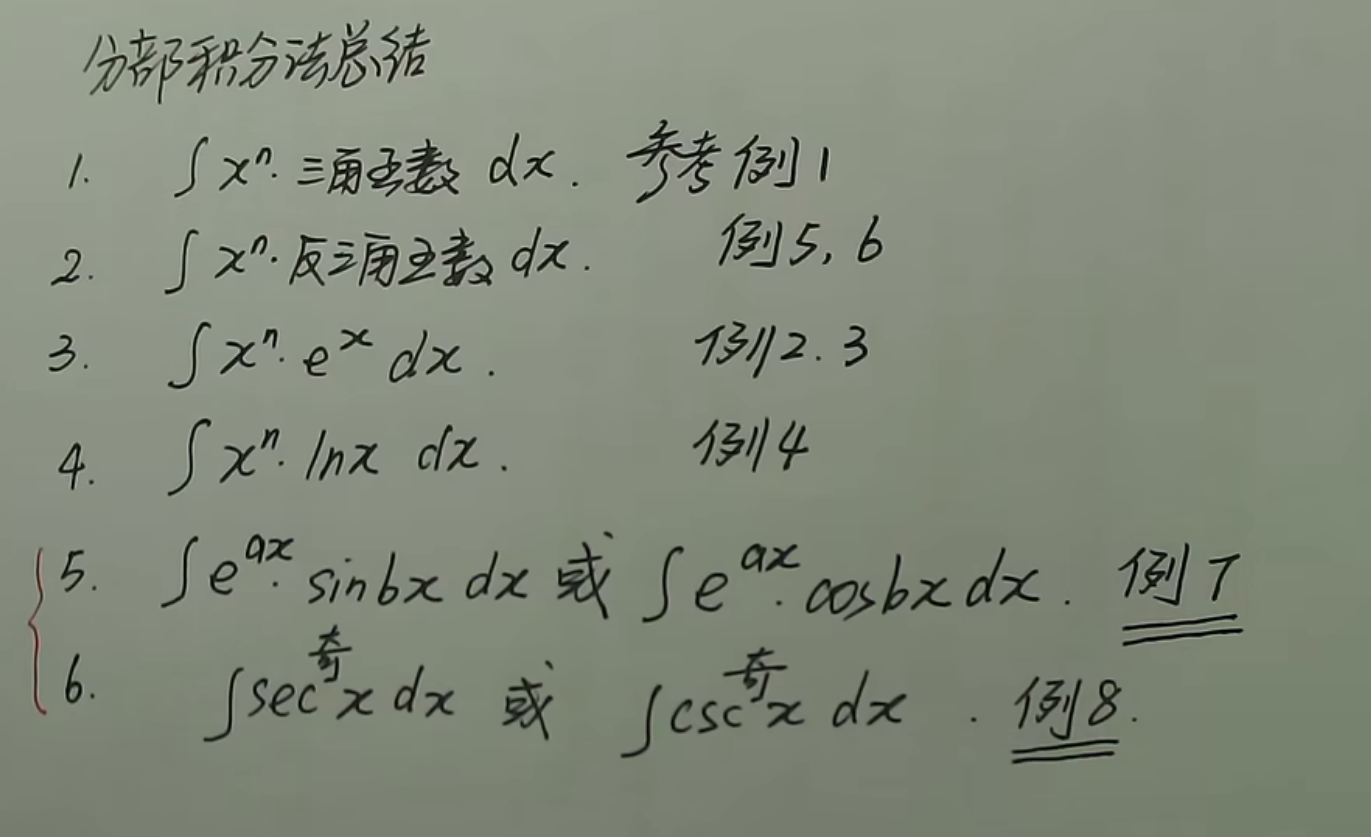 分部积分法总结
1. ∫xⁿ·三角函数 dx. 参考例1
2. ∫xⁿ·反三角函数 dx. 例5, 6
3. ∫xⁿ·eˣ dx. 例2. 3
4. ∫xⁿ·lnx dx. 例4
5. ∫e^{ax}·sinbx dx 或 ∫e^{ax}·cosbx dx. 例7
6. ∫sec^{奇}x dx 或 ∫csc^{奇}x dx. 例8.